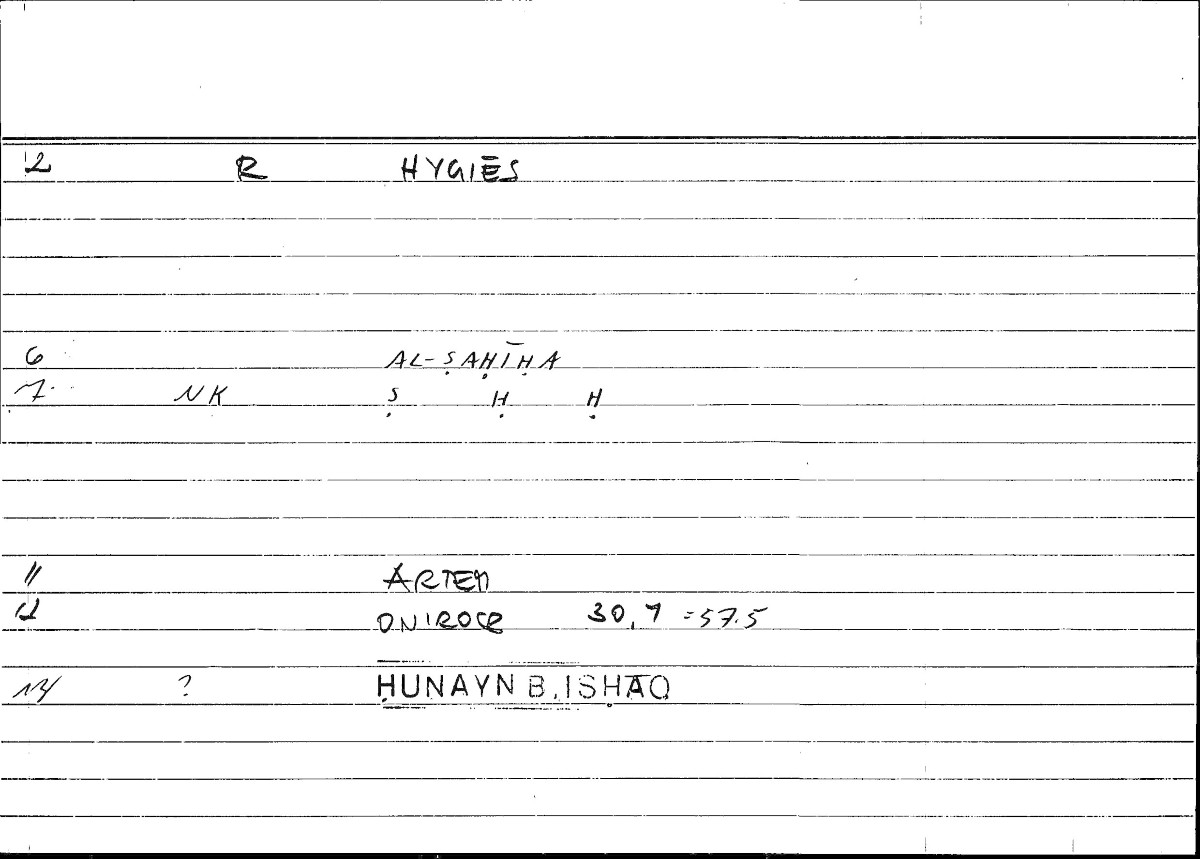 2 R HYGIĒS
6 AL-ṢAḤĪḤA
7 NK Ṣ Ḥ Ḥ
11 ARTEM
12 ONIROCR 30,7 =57.5
14 ? ḤUNAYN B. ISḤĀQ